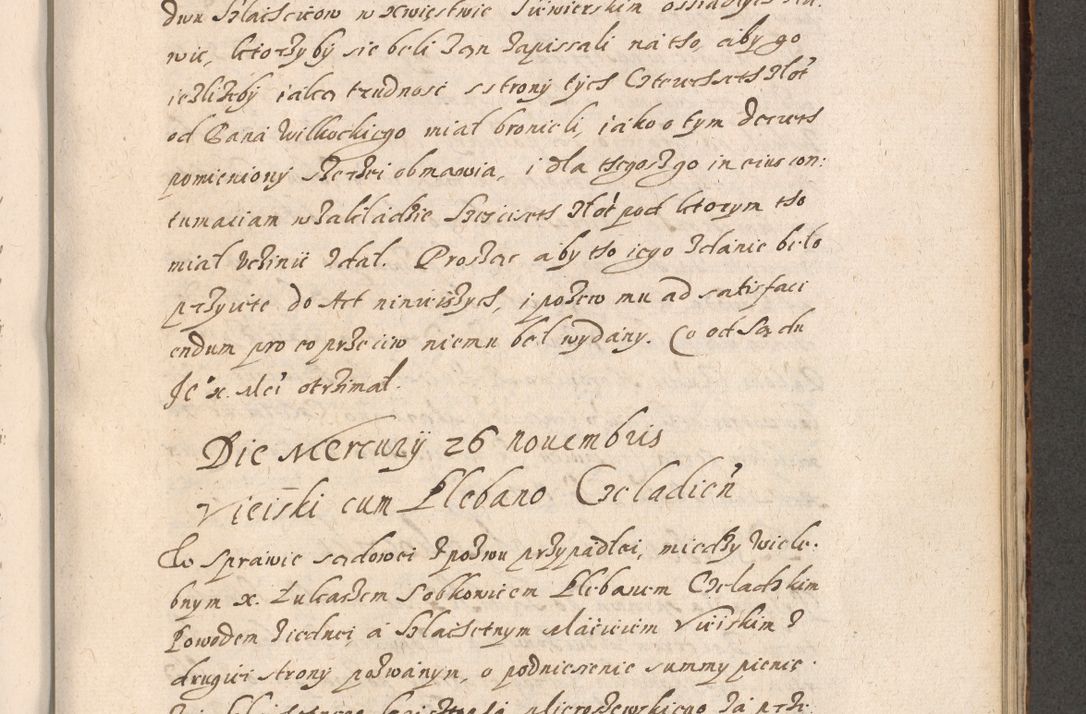 dwu Szlaćhćićow w Xwięstwie Siewierskim ossiadłych sta:
wic, ktorzyby sie beli zań zapissali na tho, aby go
iezliżeby iaką trudnosc s strony tych Czterechseth złot
od Pana Wilkockiego miał bronicli, iako o tym decreth
pomieniony szerzei obmawia, i dla thegosz go in eius con:
tumaciam w zakładzie Szesciseth złot pod ktorym tho
miał vczinić zdał. Prosząc aby tho iego zdanie beło
przyięte do Act ninieiszych, i pozew mu ad satisfaci
endum pro eo przeciw niemu beł wydany. Co od Sądu
Je° x. Mci otrzimał.
Die Mercurij 26 nouembris
Vieiski cum Plebano Czeladień
W sprawie sądowei z pozwu przypadłei, miedzy wiele:
bnym x. Łukaszem Sobkowicem Plebanem Czeladzkim
Powodem z iednei, a Szlachetnym Macieiem Vieiskim z
drugiei strony pozwanym, o podniesienie summy pienię: